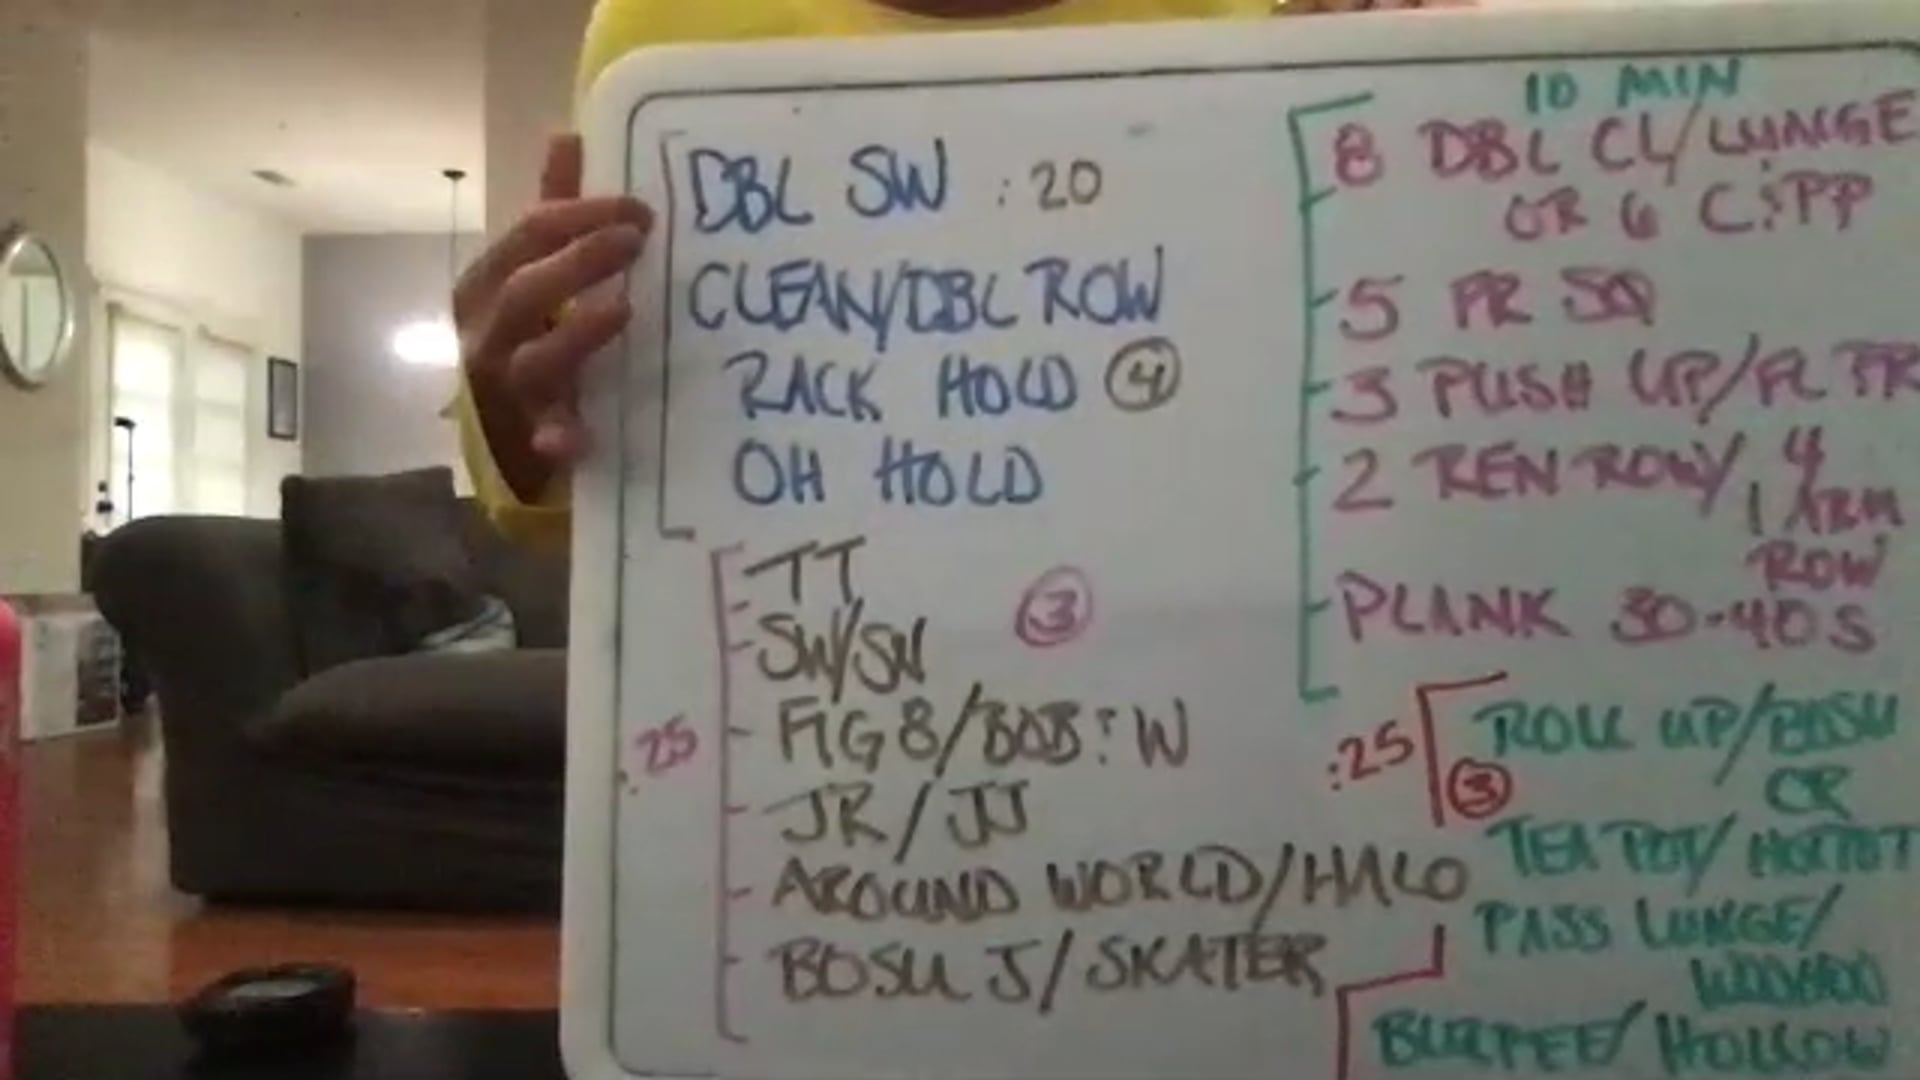 DBL SW :20
CLEAN/DBL ROW
RACK HOLD 4
OH HOLD
TT
SW/SN 3
:25
FIG 8/BOB & W
JR/JJ
AROUND WORLD/HALO
BOSU J/SKATER
10 MIN
8 DBL CL/LUNGE
OR 6 C & PP
5 FR SQ
3 PUSH UP/FL PR
2 REN ROW/4
1 ARM
ROW
PLANK 30-40S
:25 3
ROLL UP/BOSU
CR
TEA POT/HOT POT
PASS LUNGE/
WOOHOO
BURPEE/HOLLOW